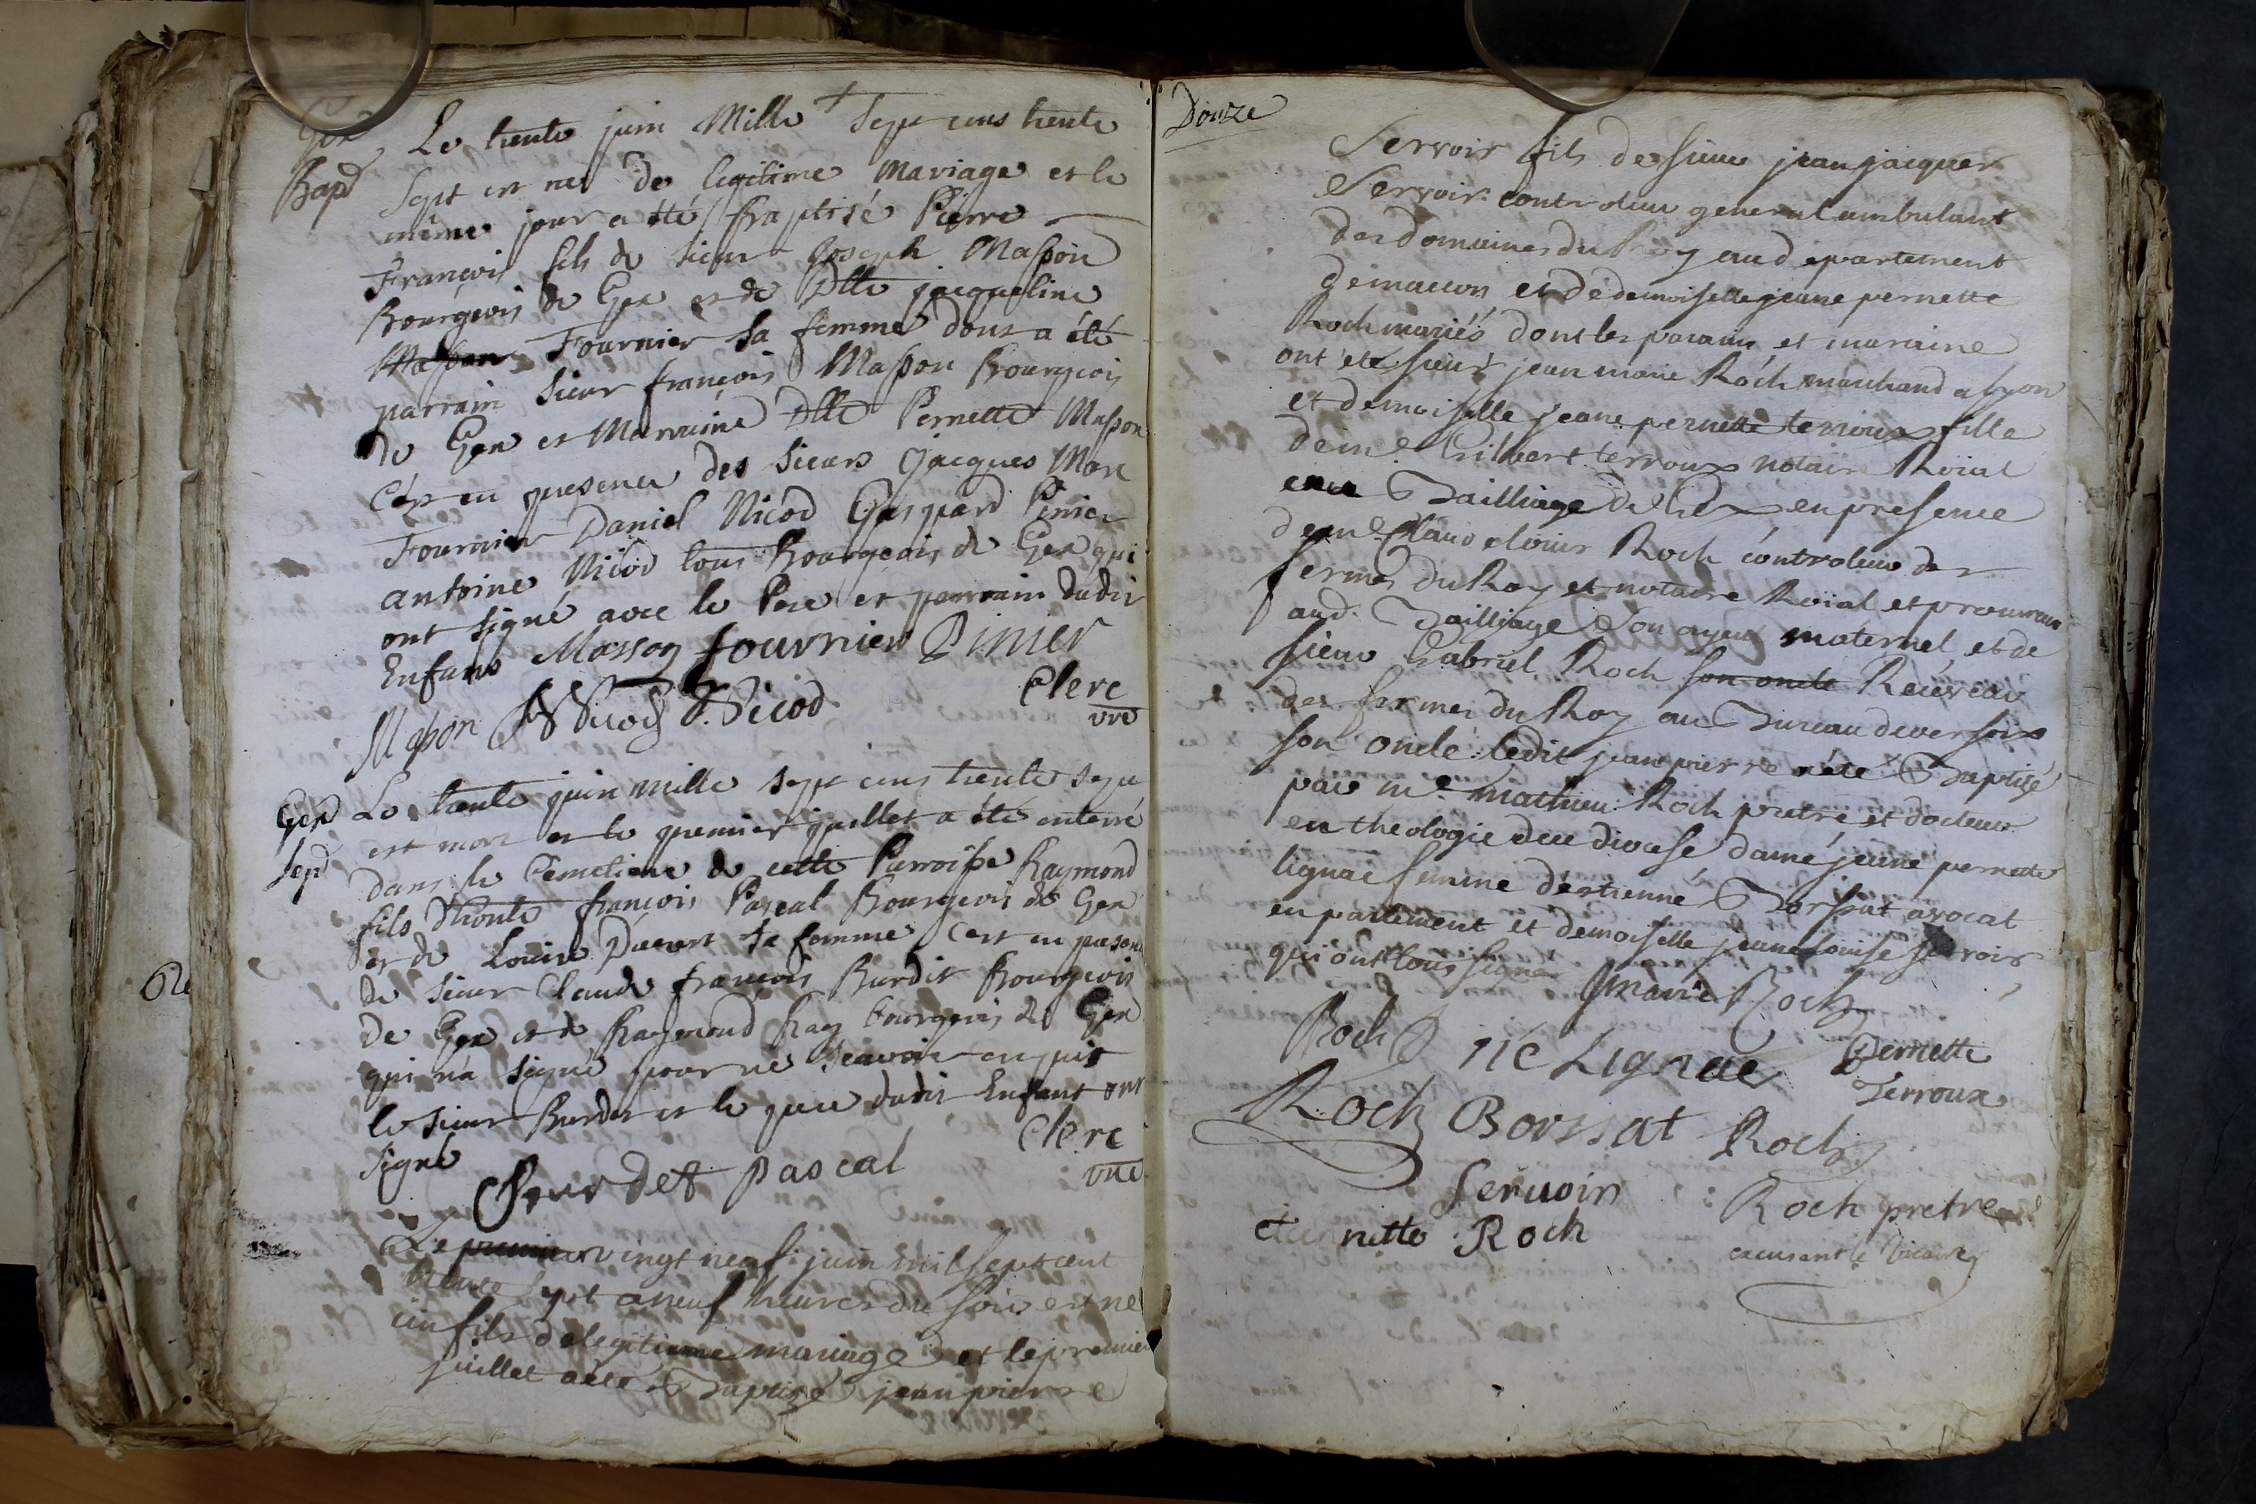 Gex
Bapt
Le trente juin Mille Sept cens trente
Sept est né de legitime Mariage et le
même jour a été baptisé Pierre
François fils de Sieur Joseph Masson
Bourgeois de Gex et de Dlle jacqueline
Masson Fournier Sa femme dont a été
parrain Sieur françois Masson Bourgeois
de Gex et Marraine Dlle Pernette Masson
C'est en presence des Sieurs jacques Marc
Fournier Daniel Nicod Gaspard Pinier
antoine Nicod tous Bourgeois de Gex qui
ont signé avec le Pere et parrain dudit
Enfans Masson fournier Pinier
Masson Nicod Nicod Clerc
vre
Gex
Sep
Le trente juin mille sept cens trente sept
est mort et le premier juillet a été enterré
dans le Cemetiere de cette Parroisse Raymond
fils d'honte françois Pascal Bourgeois de Gex
et de Louise sa femme C'est en presence
de sieur Claude françois Burdet Bourgeois
de Gex et de Raymond Ray bourgeois de Gex
qui n'a signé pour ne scavoir enquis
le sieur Burdet et le pere dudit Enfant ont
signé Clerc
Burdet Pascal vre
Le premier vingt neuf juin mil sept cent
trente sept a neuf heures du soir est né
un fils de legitime mariage et le premier
juillet a été Baptisé jean pierre
Douze
Servoir fils de sieur jean jacques
Servoir controleur general ambulant
des domaines du Roy au departement
de macon et de demoiselle jeanne pernette
Roch mariés dont les parain et maraine
ont été sieur jean marie Roch marchand a lyon
et demoiselle jeane pernette terroux fille
de me Gilbert terroux notaire Roial
au Bailliage de Gex en presence
de me Claude louis Roch controleur des
fermes du Roy et notaire Roial et procureur
aud. Bailliage son ayeul maternel et de
sieur Gabriel Roch son oncle Receveur
des fermes du Roy au Bureau de versoix
son oncle ledit jean pierre a été Baptisé
par me mathieu Roch pretre et docteur
en theologie du diocese dame jeanne pernette
lignac femme d'estienne Borssat avocat
en parlement et demoiselle jeanne louise servoir
qui ont tous signé Jmarie Roch
Roch Lignac Pernette
Terroux
Roch Borssat Roch
Servoir Roch pretre
nette Roch